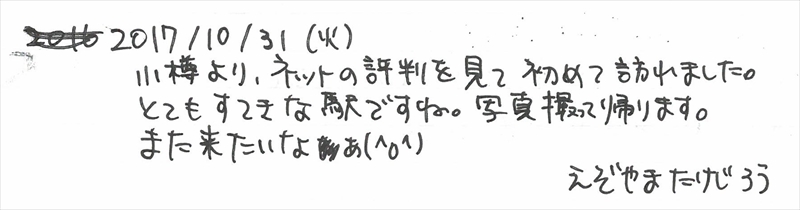 2016 2017/10/31(火)
小樽より、ネットの評判を見て初めて訪れました。
とてもすてきな駅ですね。写真撮って帰ります。
また来たいなぁ(^o^)
えぞやまたけじろう